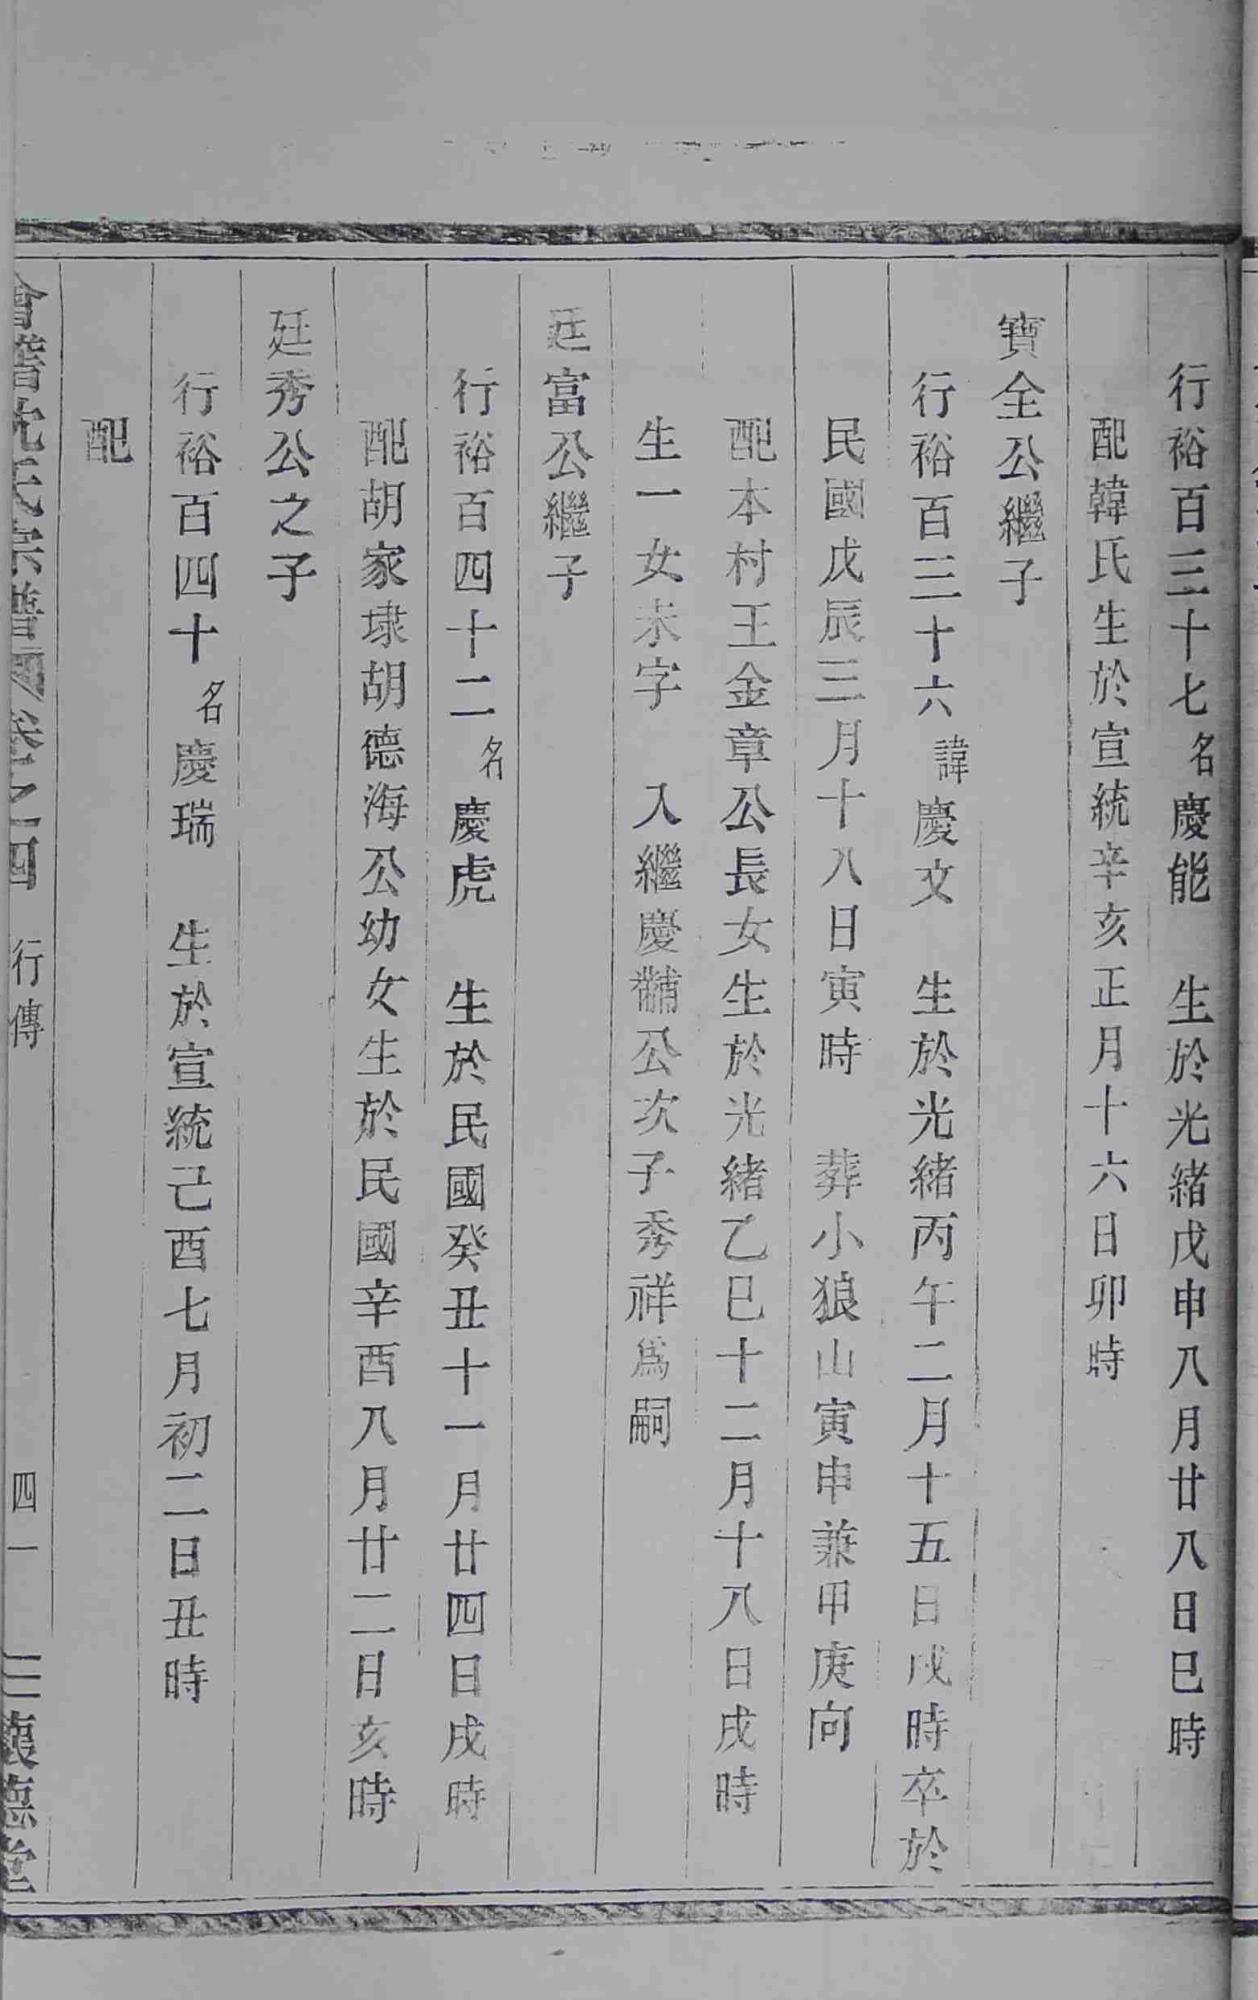 行裕百三十七名慶能　生於光緒戊申八月廿八日巳時
配韓氏生於宣統辛亥正月十六日卯時
寶全公繼子
行裕百三十六諱慶文　生於光緒丙午二月十五日戌時卒於
民國戊辰三月十八日寅時　葬小狼山寅申兼甲庚向
配本村王金章公長女生於光緒乙巳十二月十八日戌時
生一女未字　入繼慶黼公次子秀祥爲嗣
廷富公繼子
行裕百四十二名慶虎　生於民國癸丑十一月廿四日戌時
配胡家埭胡德海公幼女生於民國辛酉八月廿二日亥時
廷秀公之子
行裕百四十名慶瑞　生於宣統己酉七月初二日丑時
配
會稽沈氏宗譜　卷之四　行傳　四一　德堂